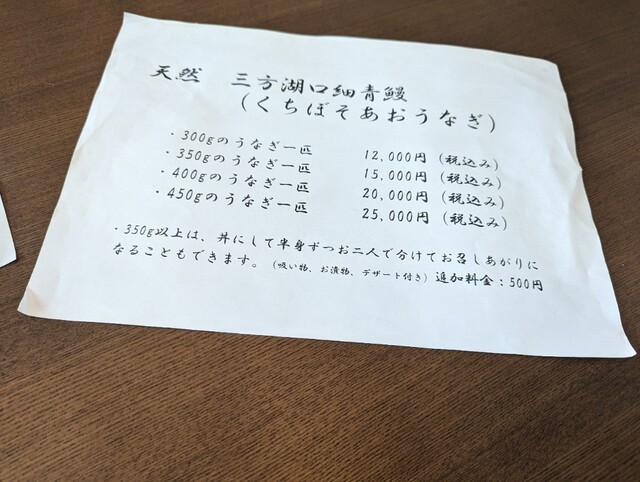 天然 三方湖口細青鰻
(くちぼそあおうなぎ)
・300gのうなぎ一匹 12,000円 (税込み)
・350gのうなぎ一匹 15,000円 (税込み)
・400gのうなぎ一匹 20,000円 (税込み)
・450gのうなぎ一匹 25,000円 (税込み)
・350g以上は、丼にして半身ずつお二人で分けてお召しあがりに
なることもできます。(吸い物、お漬物、デザート付き) 追加料金:500円